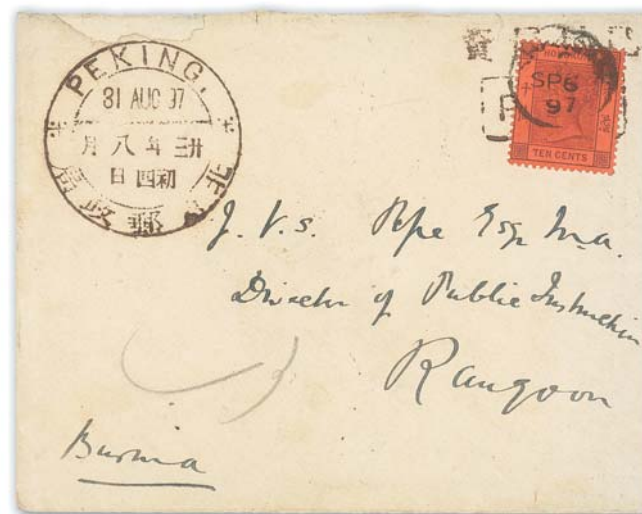 PEKING.
31 AUG 97
廿三年八月
初四日
郵政局
HONG KONG
SP 6
97
TEN CENTS
J. V. S. Pope Esq. M.a.
Director of Public Instruction
Rangoon
Burma